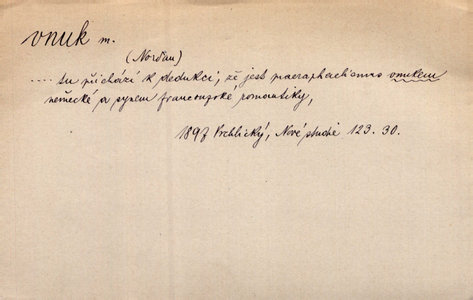 vnuk m.
(Nordau)
.... tu přichází k dedukci, že jest praeraphaelismus vnukem
německé a synem francouzské romantiky,
1897 Vrchlický, Nové studie 123. 30.